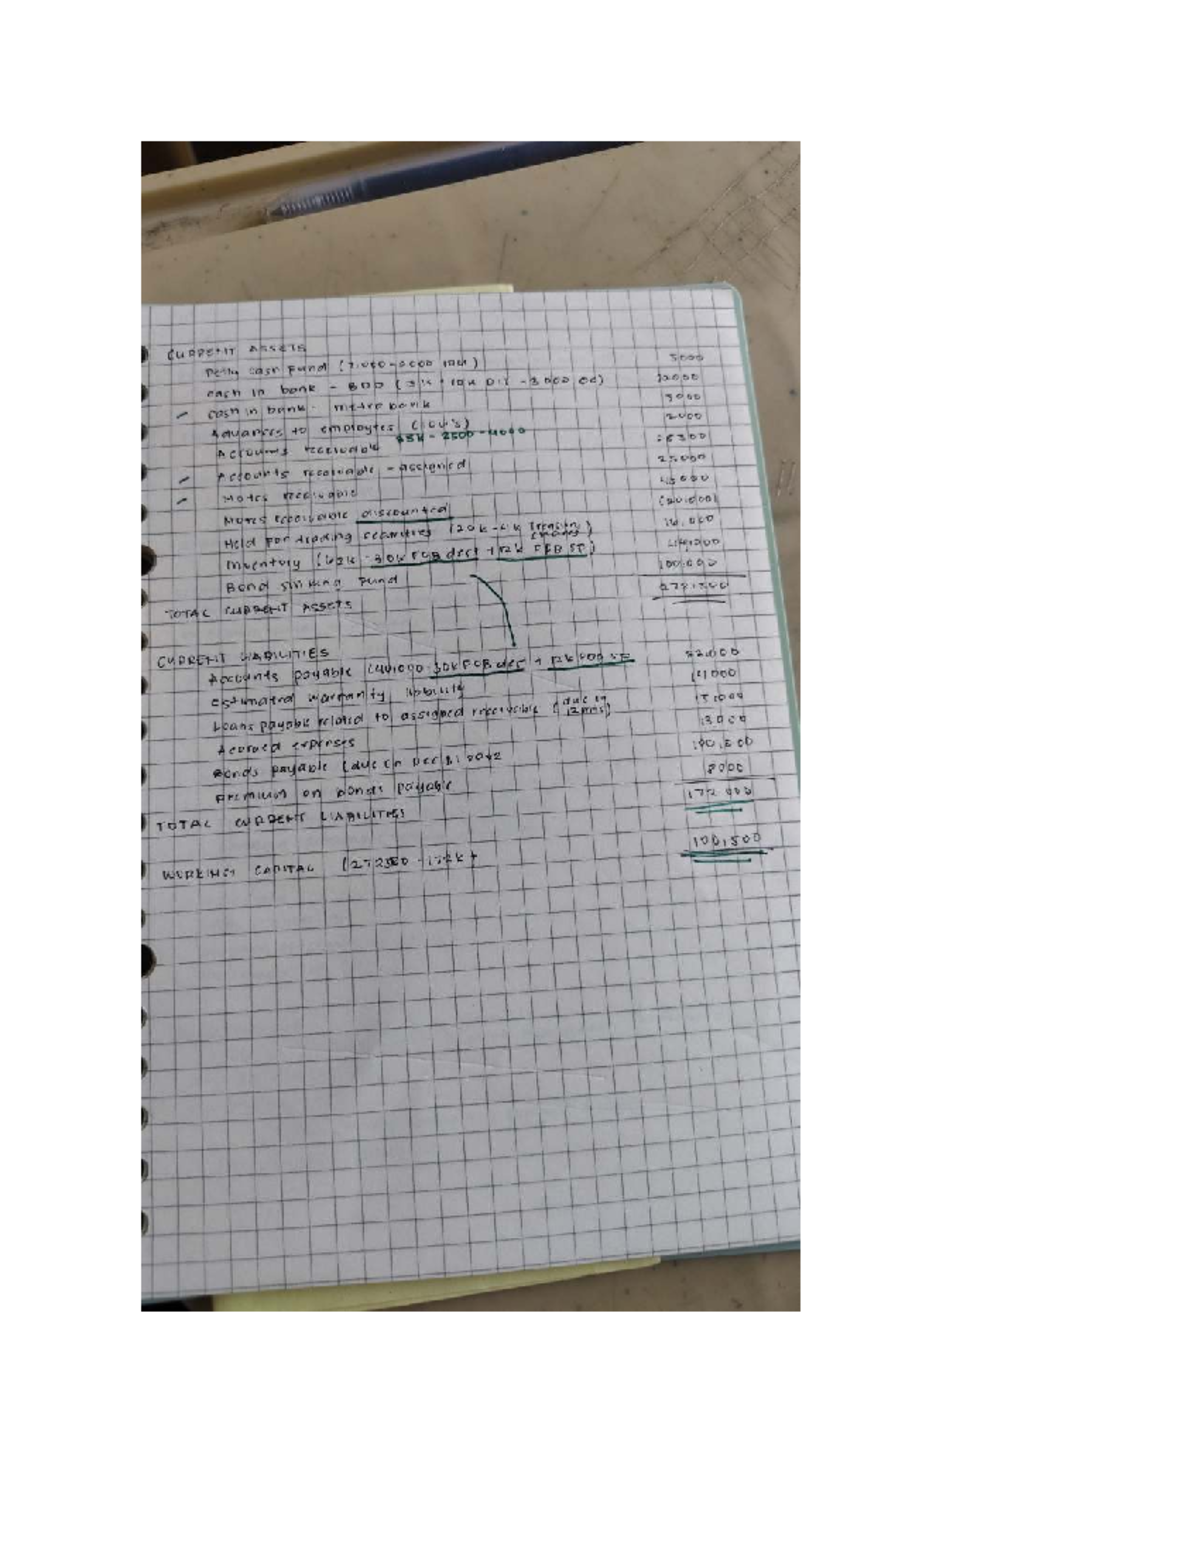 CURRENT ASSETS
Petty cash Fund (7,000-2000 IOU) 5000
cash in bank - BDO 22000
cash in bank - metro bank 3000
Advances to employees (IOU's) 2000
Accounts receivable - 2500 - 4000
Accounts receivable - assigned 25000
Notes receivable
Notes receivable discounted (20,000)
Held for trading securities (20k-4k Treasury shares) 16,000
Inventory (62k - 30k FOB dest + 12k FOB SP) 44,000
Bond sinking Fund 100,000
TOTAL CURRENT ASSETS 272,500
CURRENT LIABILITIES
Accounts payable 30k FOB des + 12k FOB SP 22,000
Estimated warranty liability
Loans payable related to assigned receivable (due in 12mos) 15,000
Accrued expenses
Bonds payable (due in Dec
Premium on bonds payable
TOTAL CURRENT LIABILITIES 172,000
WORKING CAPITAL (272500 - 172k) 100,500